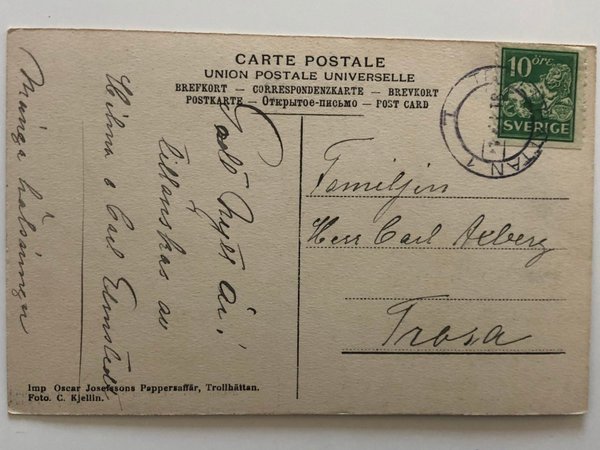 CARTE POSTALE
UNION POSTALE UNIVERSELLE
BREFKORT — CORRESPONDENZKARTE — BREVKORT
POSTKARTE — Открытое-письмо — POST CARD
10 ÖRE
SVERIGE
TTAN 1
Godt Nytt år!
tillönskas av
Hilma o Carl Elmstedt
Många hälsningar
Familjen
Herr Carl Axberg
Trosa
Imp Oscar Josefssons Pappersaffär, Trollhättan.
Foto. C. Kjellin.